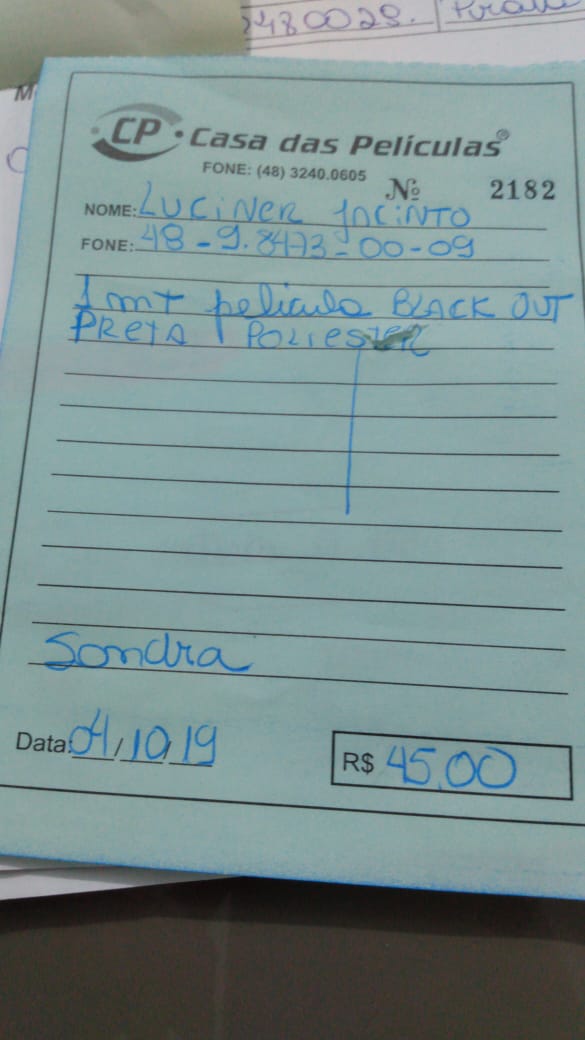 2480029.
M
CP • Casa das Películas®
FONE: (48) 3240.0605
Nº 2182
NOME: LUCiNER JACiNTO
FONE: 48-9.8473-00-09
1 mt pelicula BLACK OUT
PRETA POLIESTER
Sondra
Data: 04/10/19
R$ 45,00